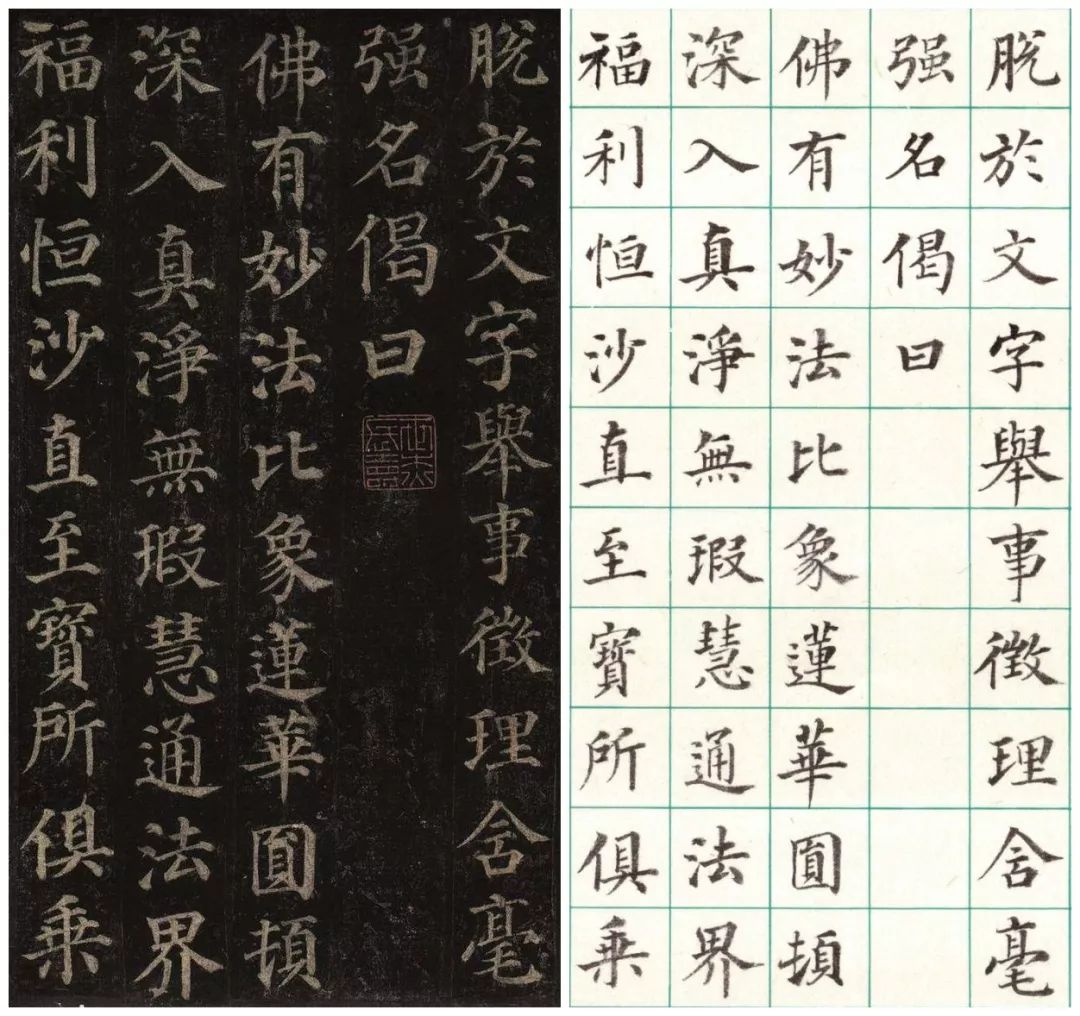 脱於文字舉事徵理含毫
强名偈曰
佛有妙法比象蓮華圓頓
深入真淨無瑕慧通法界
福利恒沙直至寶所俱乘
脱於文字舉事徵理含毫
强名偈曰
佛有妙法比象蓮華圓頓
深入真淨無瑕慧通法界
福利恒沙直至寶所俱乘